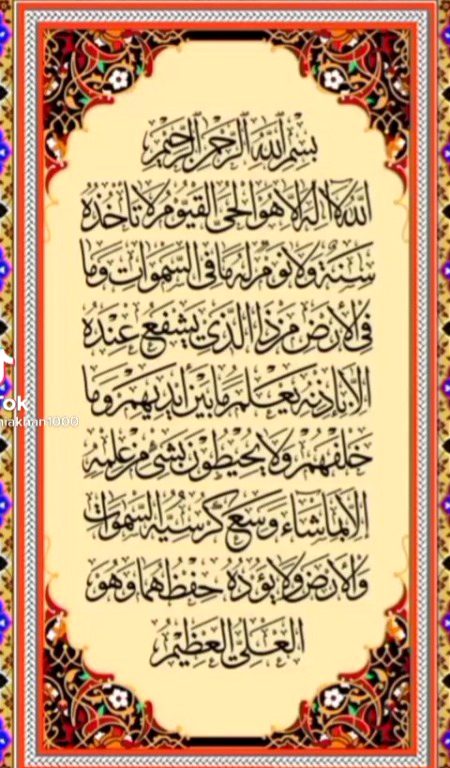 بِسْمِ اللهِ الرَّحْمٰنِ الرَّحِيْمِ
اللهُ لَا اِلٰهَ اِلَّا هُوَ الْحَيُّ الْقَيُّوْمُ لَا تَأْخُذُهُ
سِنَةٌ وَلَا نَوْمٌ لَهُ مَا فِي السَّمٰوَاتِ وَمَا
فِي الْاَرْضِ مَنْ ذَا الَّذِيْ يَشْفَعُ عِنْدَهُ
اِلَّا بِاِذْنِهِ يَعْلَمُ مَا بَيْنَ اَيْدِيْهِمْ وَمَا
خَلْفَهُمْ وَلَا يُحِيْطُوْنَ بِشَيْءٍ مِنْ عِلْمِهِ
اِلَّا بِمَا شَاءَ وَسِعَ كُرْسِيُّهُ السَّمٰوَاتِ
وَالْاَرْضَ وَلَا يَؤُدُهُ حِفْظُهُمَا وَهُوَ
الْعَلِيُّ الْعَظِيْمُ